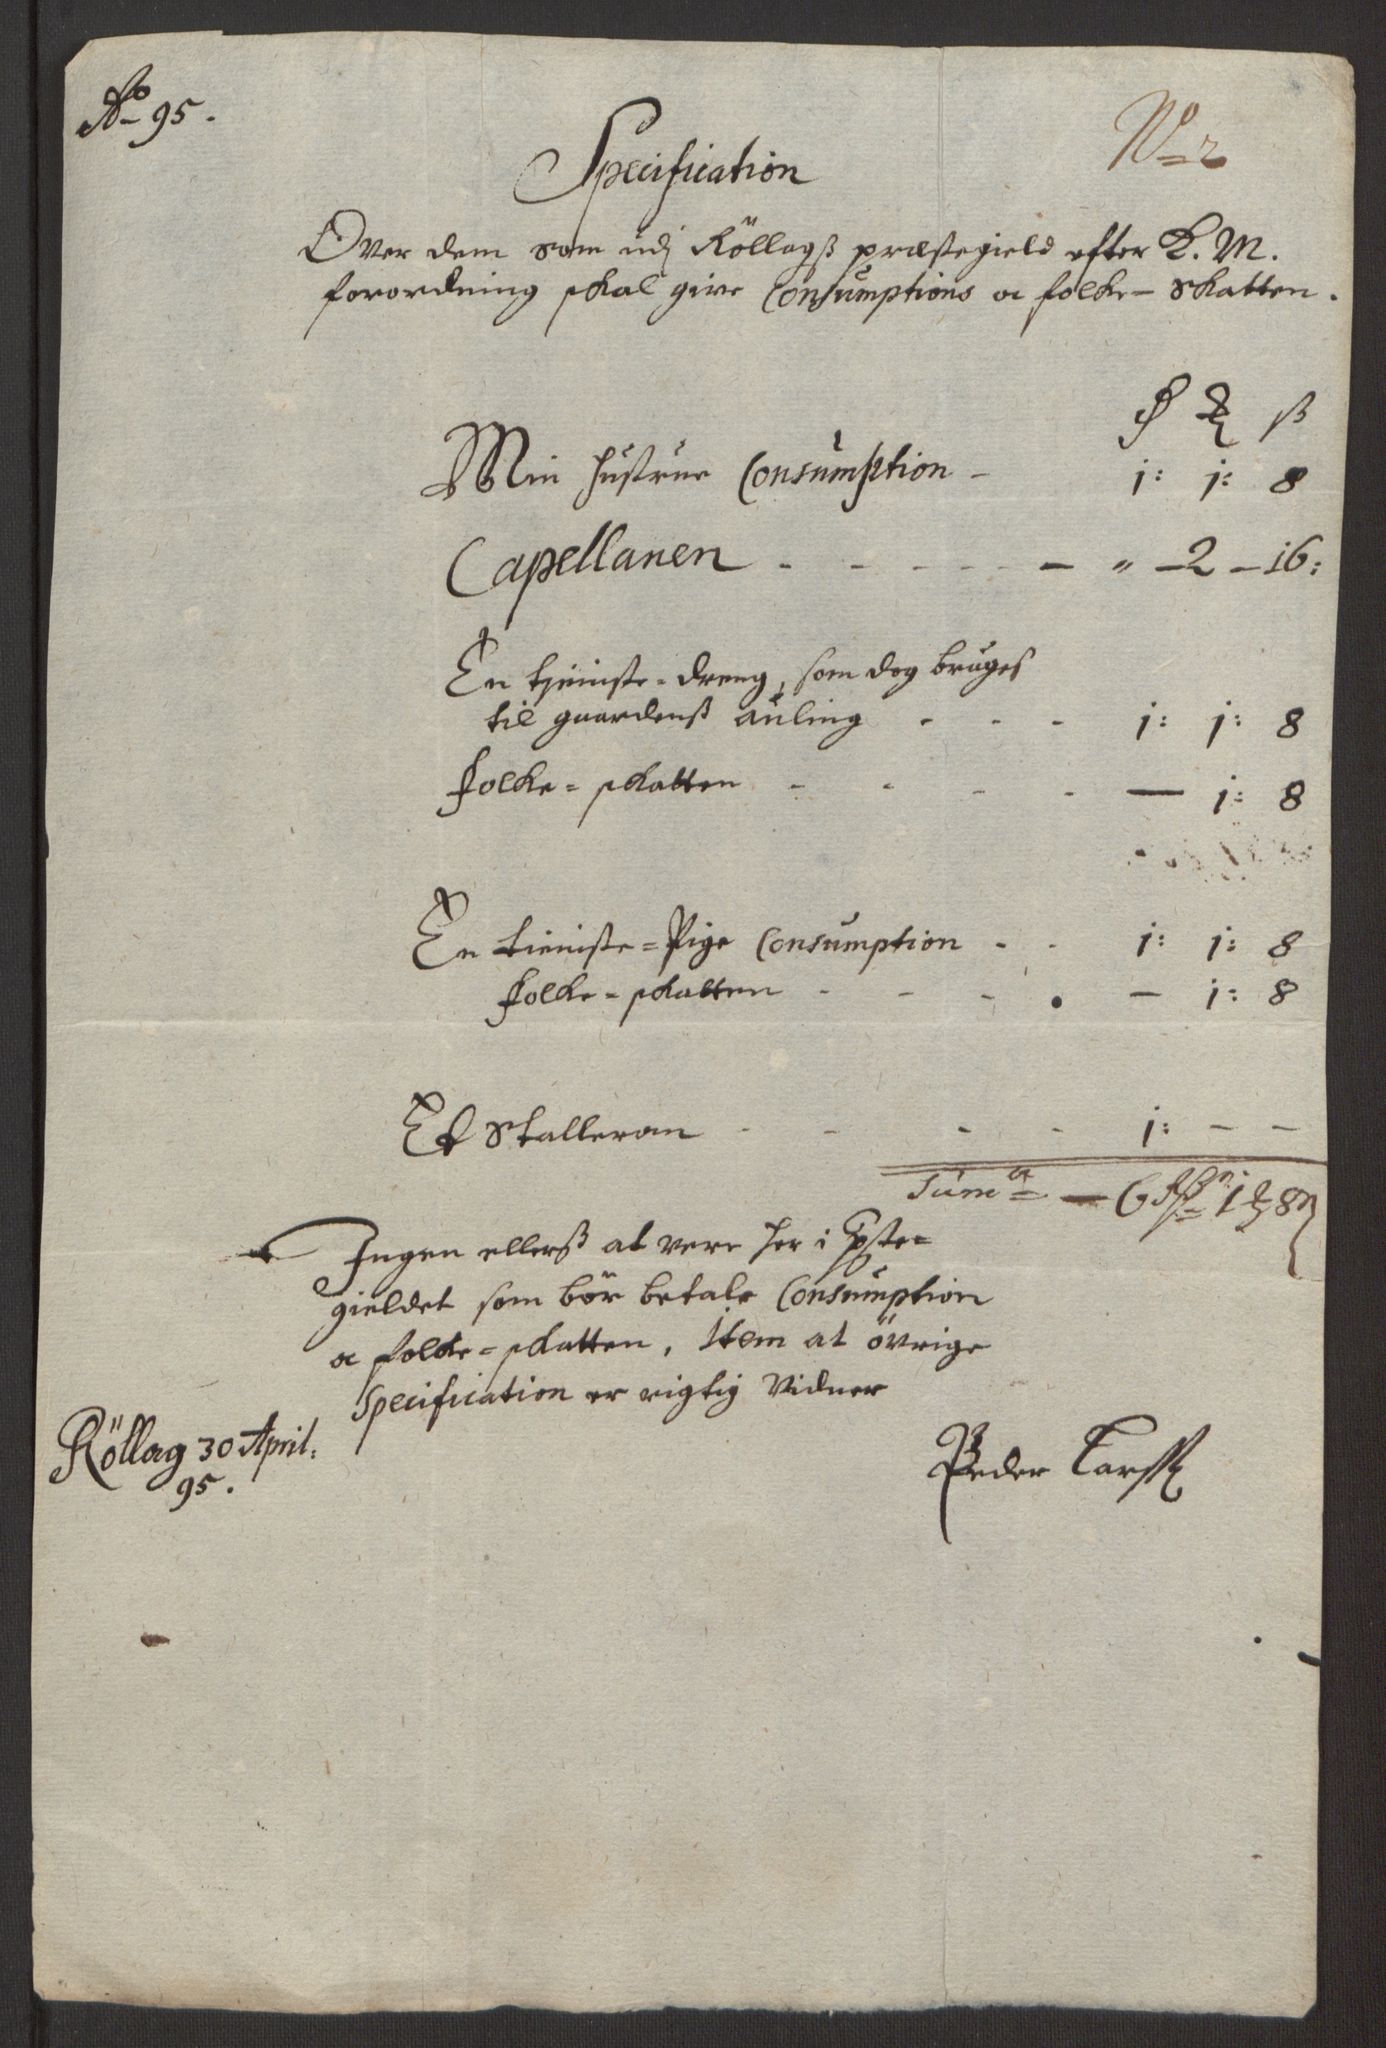 Ao 95.
No 2
Specification
Over dem som udj Röllagß præstegield efter K. M.
forordning skal give Consumptions oc folke-skatten.
ß
Min hustrue Consumption - 1: 1: 8
Capellanen - - - - - - „ - 2 - 16:
En tjeniste-dreng, som dog bruges
til gaardenß auling - - - 1: 1: 8
folke-skatten - - - - — 1: 8
En tieniste-Pige Consumption - - 1: 1: 8
folke-skatten - - - - 1: 8
Et Stallerom - - - - 1: - -
Suma — 6 1 8
Ingen ellerß at vere her i
gieldet som bör betale Consumption
oc folke-skatten, Item at övrige
Specification er rigtig Vidner
Röllag 30 April:
95.
Peder